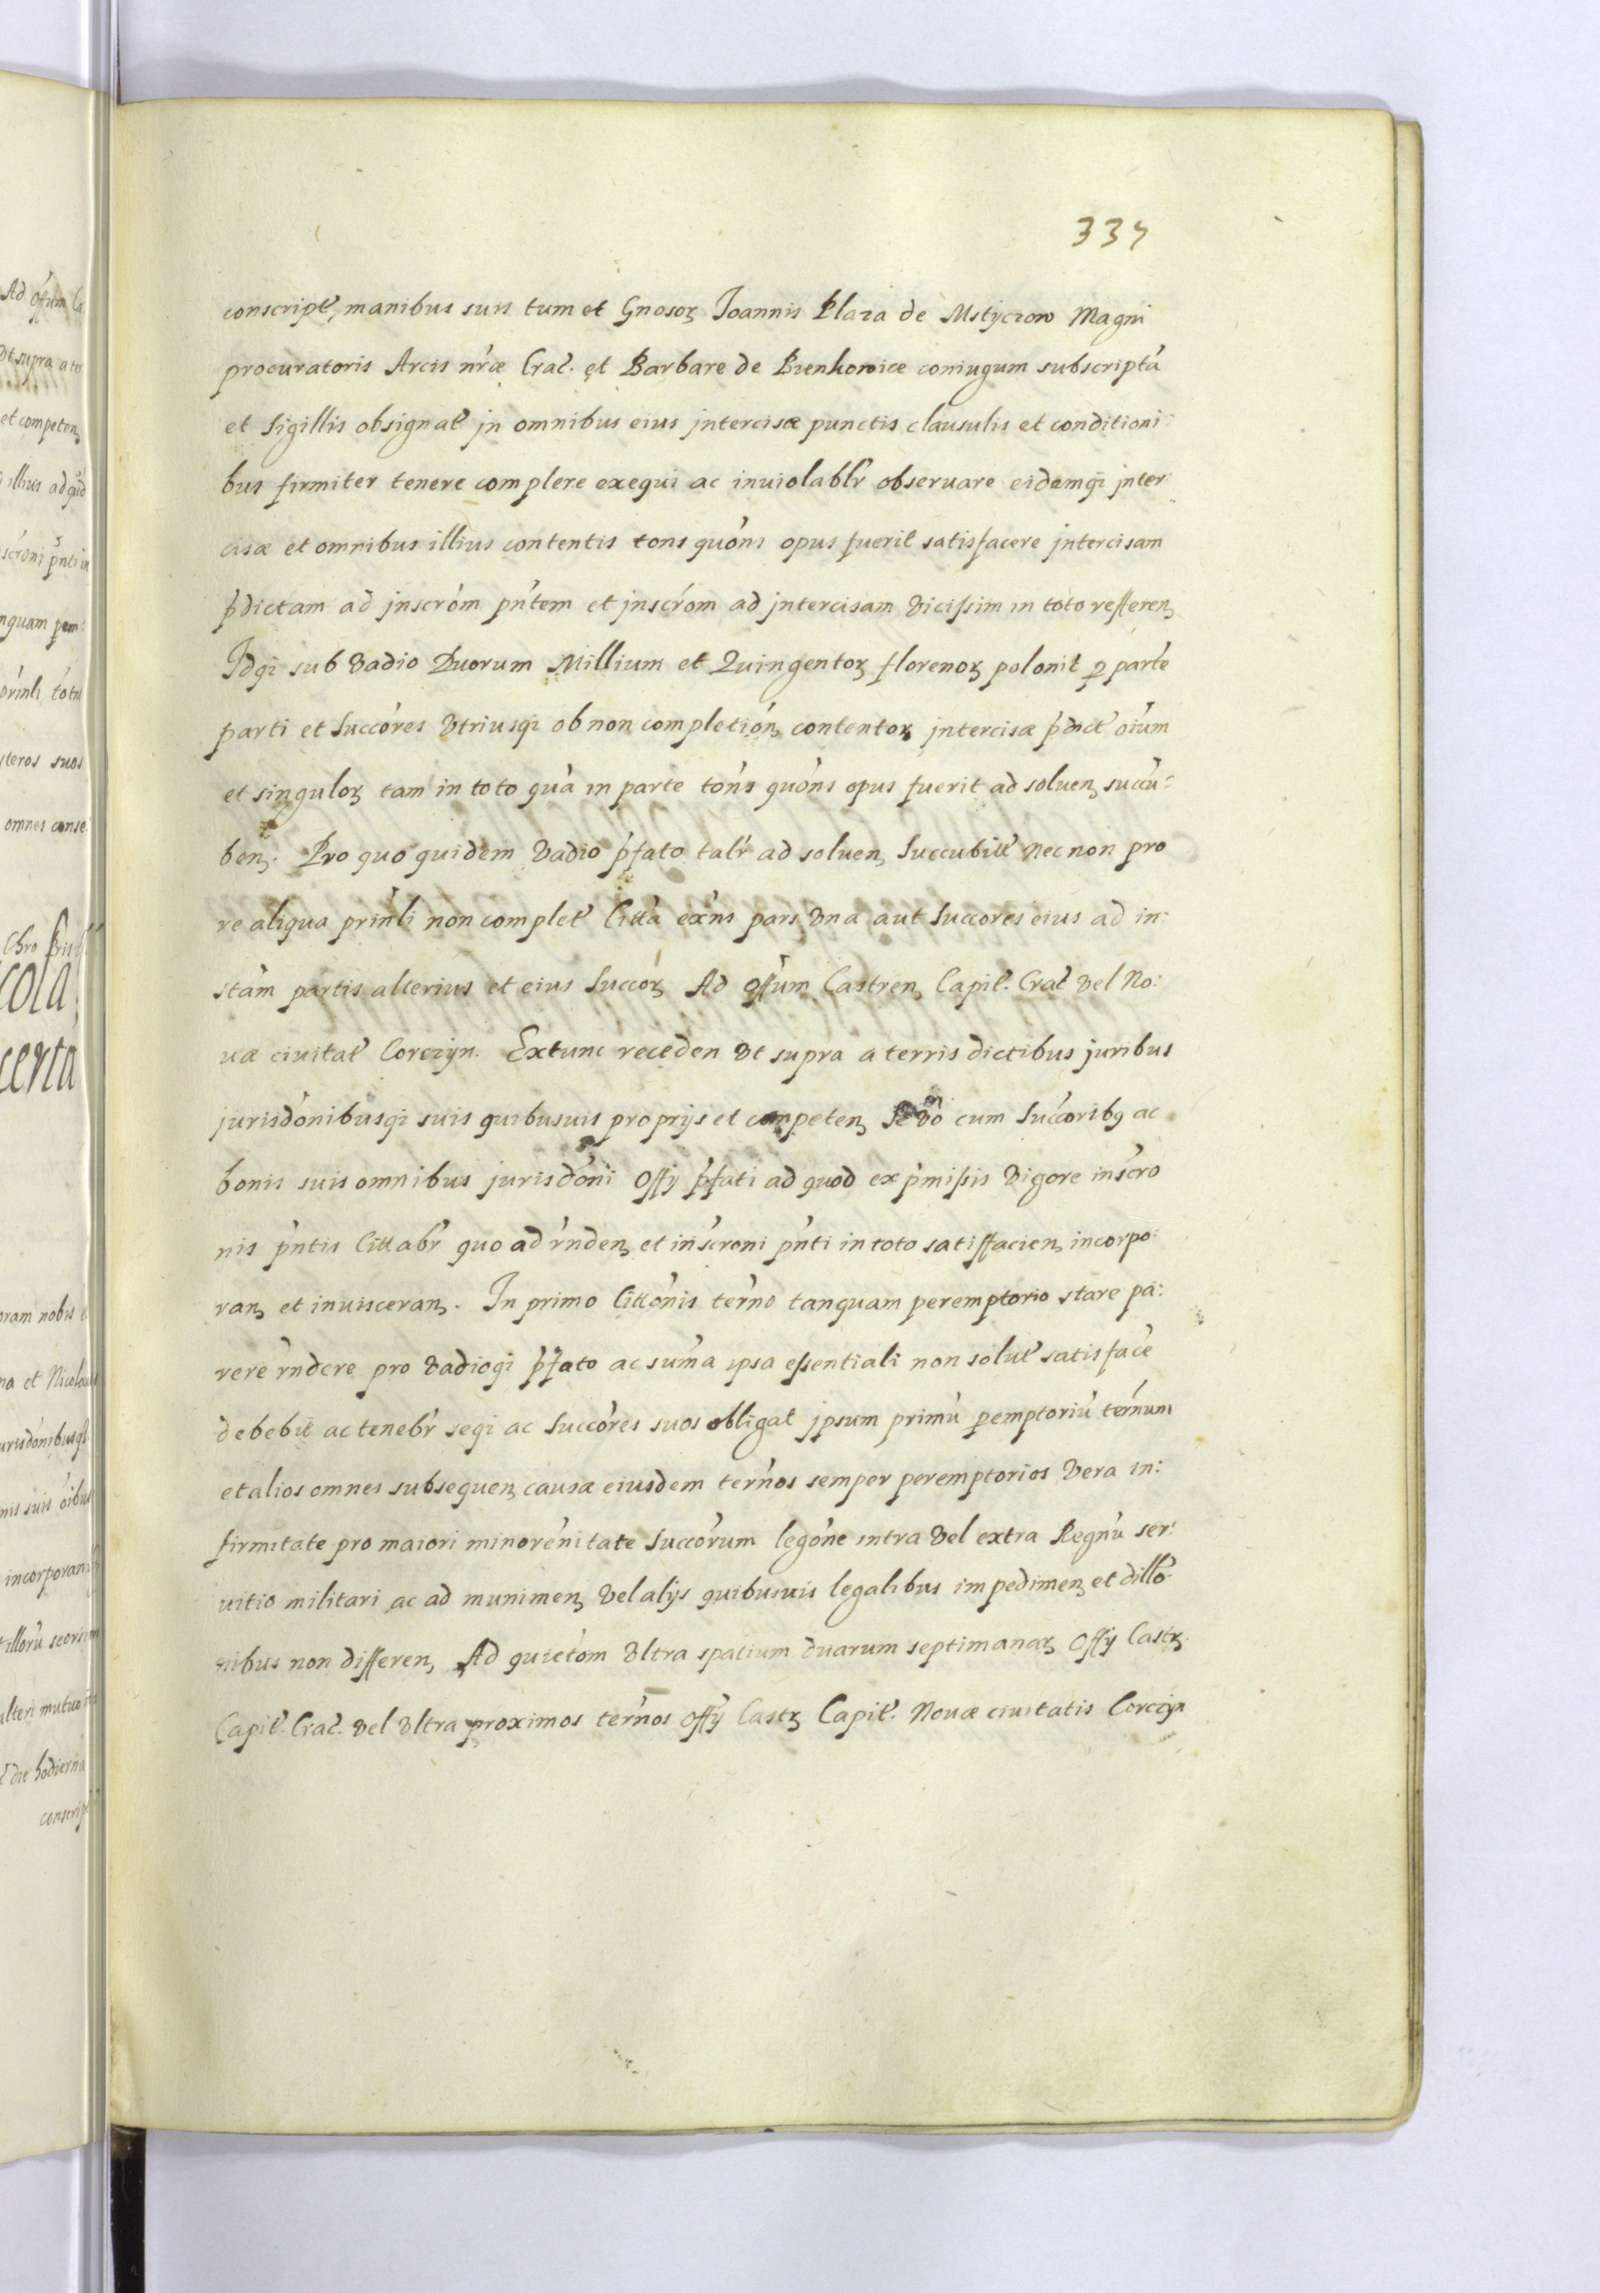 337
conscript, manibus suis tum et Gnosoꝝ Joannis Plaza de Mstyczow Magni
procuratoris Arcis nr̃æ Crac̃. et Barbare de Bienkowice coniugum subscripta
et Sigillis obsignat̃ jn omnibus eius jntercisæ punctis clausulis et conditioni:
bus firmiter tenere complere exequi ac inuiolabl̃r obseruare eidemqꝫ jnter
cisæ et omnibus illius contentis tons quõns opus fuerit satisfacere jntercisam
p̃dictam ad jnscrõm pñtem et jnscrõm ad jntercisam vicissim in toto referenꝫ
Idqꝫ sub vadio Duorum Millium et Quingentoꝝ florenoꝝ polonit ꝑ parte
parti et Succõres vtriusqꝫ ob non completionꝫ contentoꝝ jntercisæ p̃dict̃ oiũm
et singuloꝝ tam in toto quã in parte tõns quõns opus fuerit ad soluenꝫ succũ:
benꝫ. Pro quo quidem vadio p̃fato tal̃r ad soluenꝫ Succubitt̃ nec non pro
re aliqua prin̄li non complet̃ Citta ex̃ns pars vna aut Succores eius ad in:
stam partis alterius et eius Succoꝝ Ad Off̃um Castrenꝫ Capit̃. Crac̃ vel No:
uæ ciuitat̃ Corczyn. Extunc receden vt supra a terris dictibus juribus
jurisdõnibusqꝫ suis quibusuis proprijs et competenꝫ se cum Succoribꝫ ac
bonis suis omnibus jurisdõni Offy p̃fati ad quod ex p̃missis vigore inscro
nis p̃ntis Cittab̃r quo ad r̃ndenꝫ et inscroni p̃nti in toto satisfacienꝫ incorpo:
ranꝫ et inuisceranꝫ. In primo Cittõnis ter̃no tanquam peremptorio stare pa:
rere r̃ndere pro vadioqꝫ p̃fato ac sum̃a ipsa essentiali non solut̃ satisfacẽ
debebit ac teneb̃r seqꝫ ac Succõres suos obligat jpsum primũ ꝑemptoriũ ter̃num
et alios omnes subsequenꝫ causæ eiusdem ter̃nos semper peremptorios vera in:
firmitate pro maiori minorenitate Succõrum legõne intra vel extra Regnũ ser:
uitio militari ac ad munimenꝫ vel alijs quibusuis legalibus impedimenꝫ et dillõ:
nibus non differenꝫ Ad quietom vltra spatium duarum septimanaꝝ Offy Castꝝ.
Capit̃. Crac̃. vel vltra proximos ter̃nos Offy Castꝝ Capit̃. Nouæ ciuitatis Corczyn